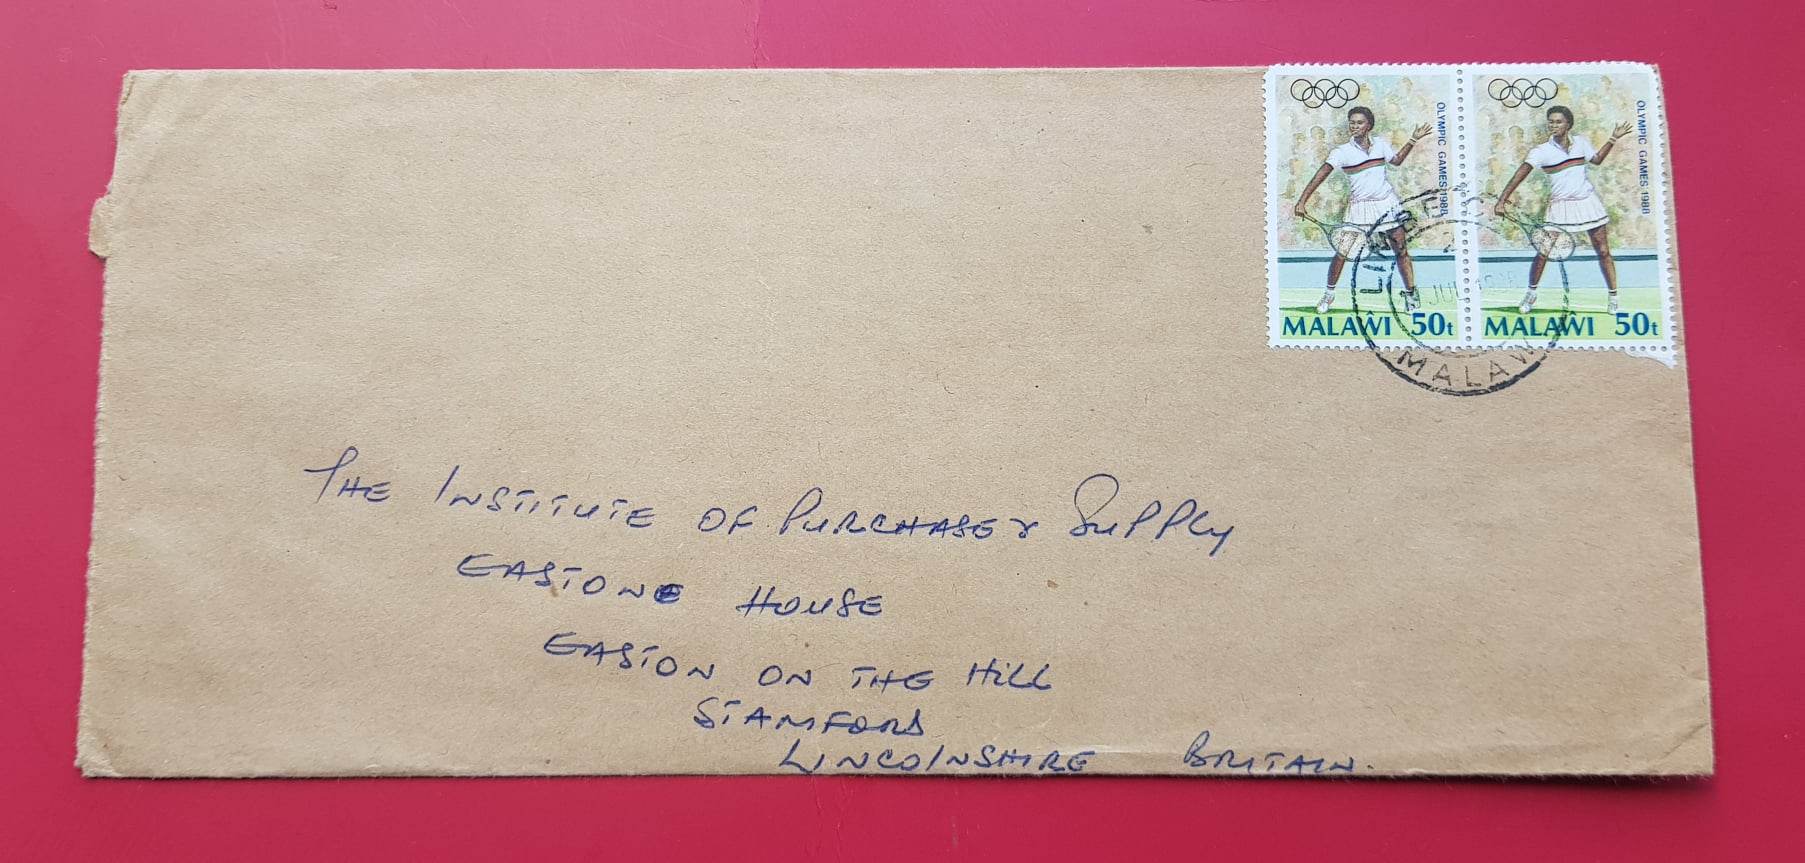 OLYMPIC GAMES 1988
MALAŴI 50t
OLYMPIC GAMES 1988
MALAŴI 50t
LIMBE
JUL
MALAWI
THE INSTITUTE OF PURCHASE & SUPPLY
EASTONE HOUSE
EASTON ON THE HILL
STAMFORD
LINCOLNSHIRE BRITAIN.